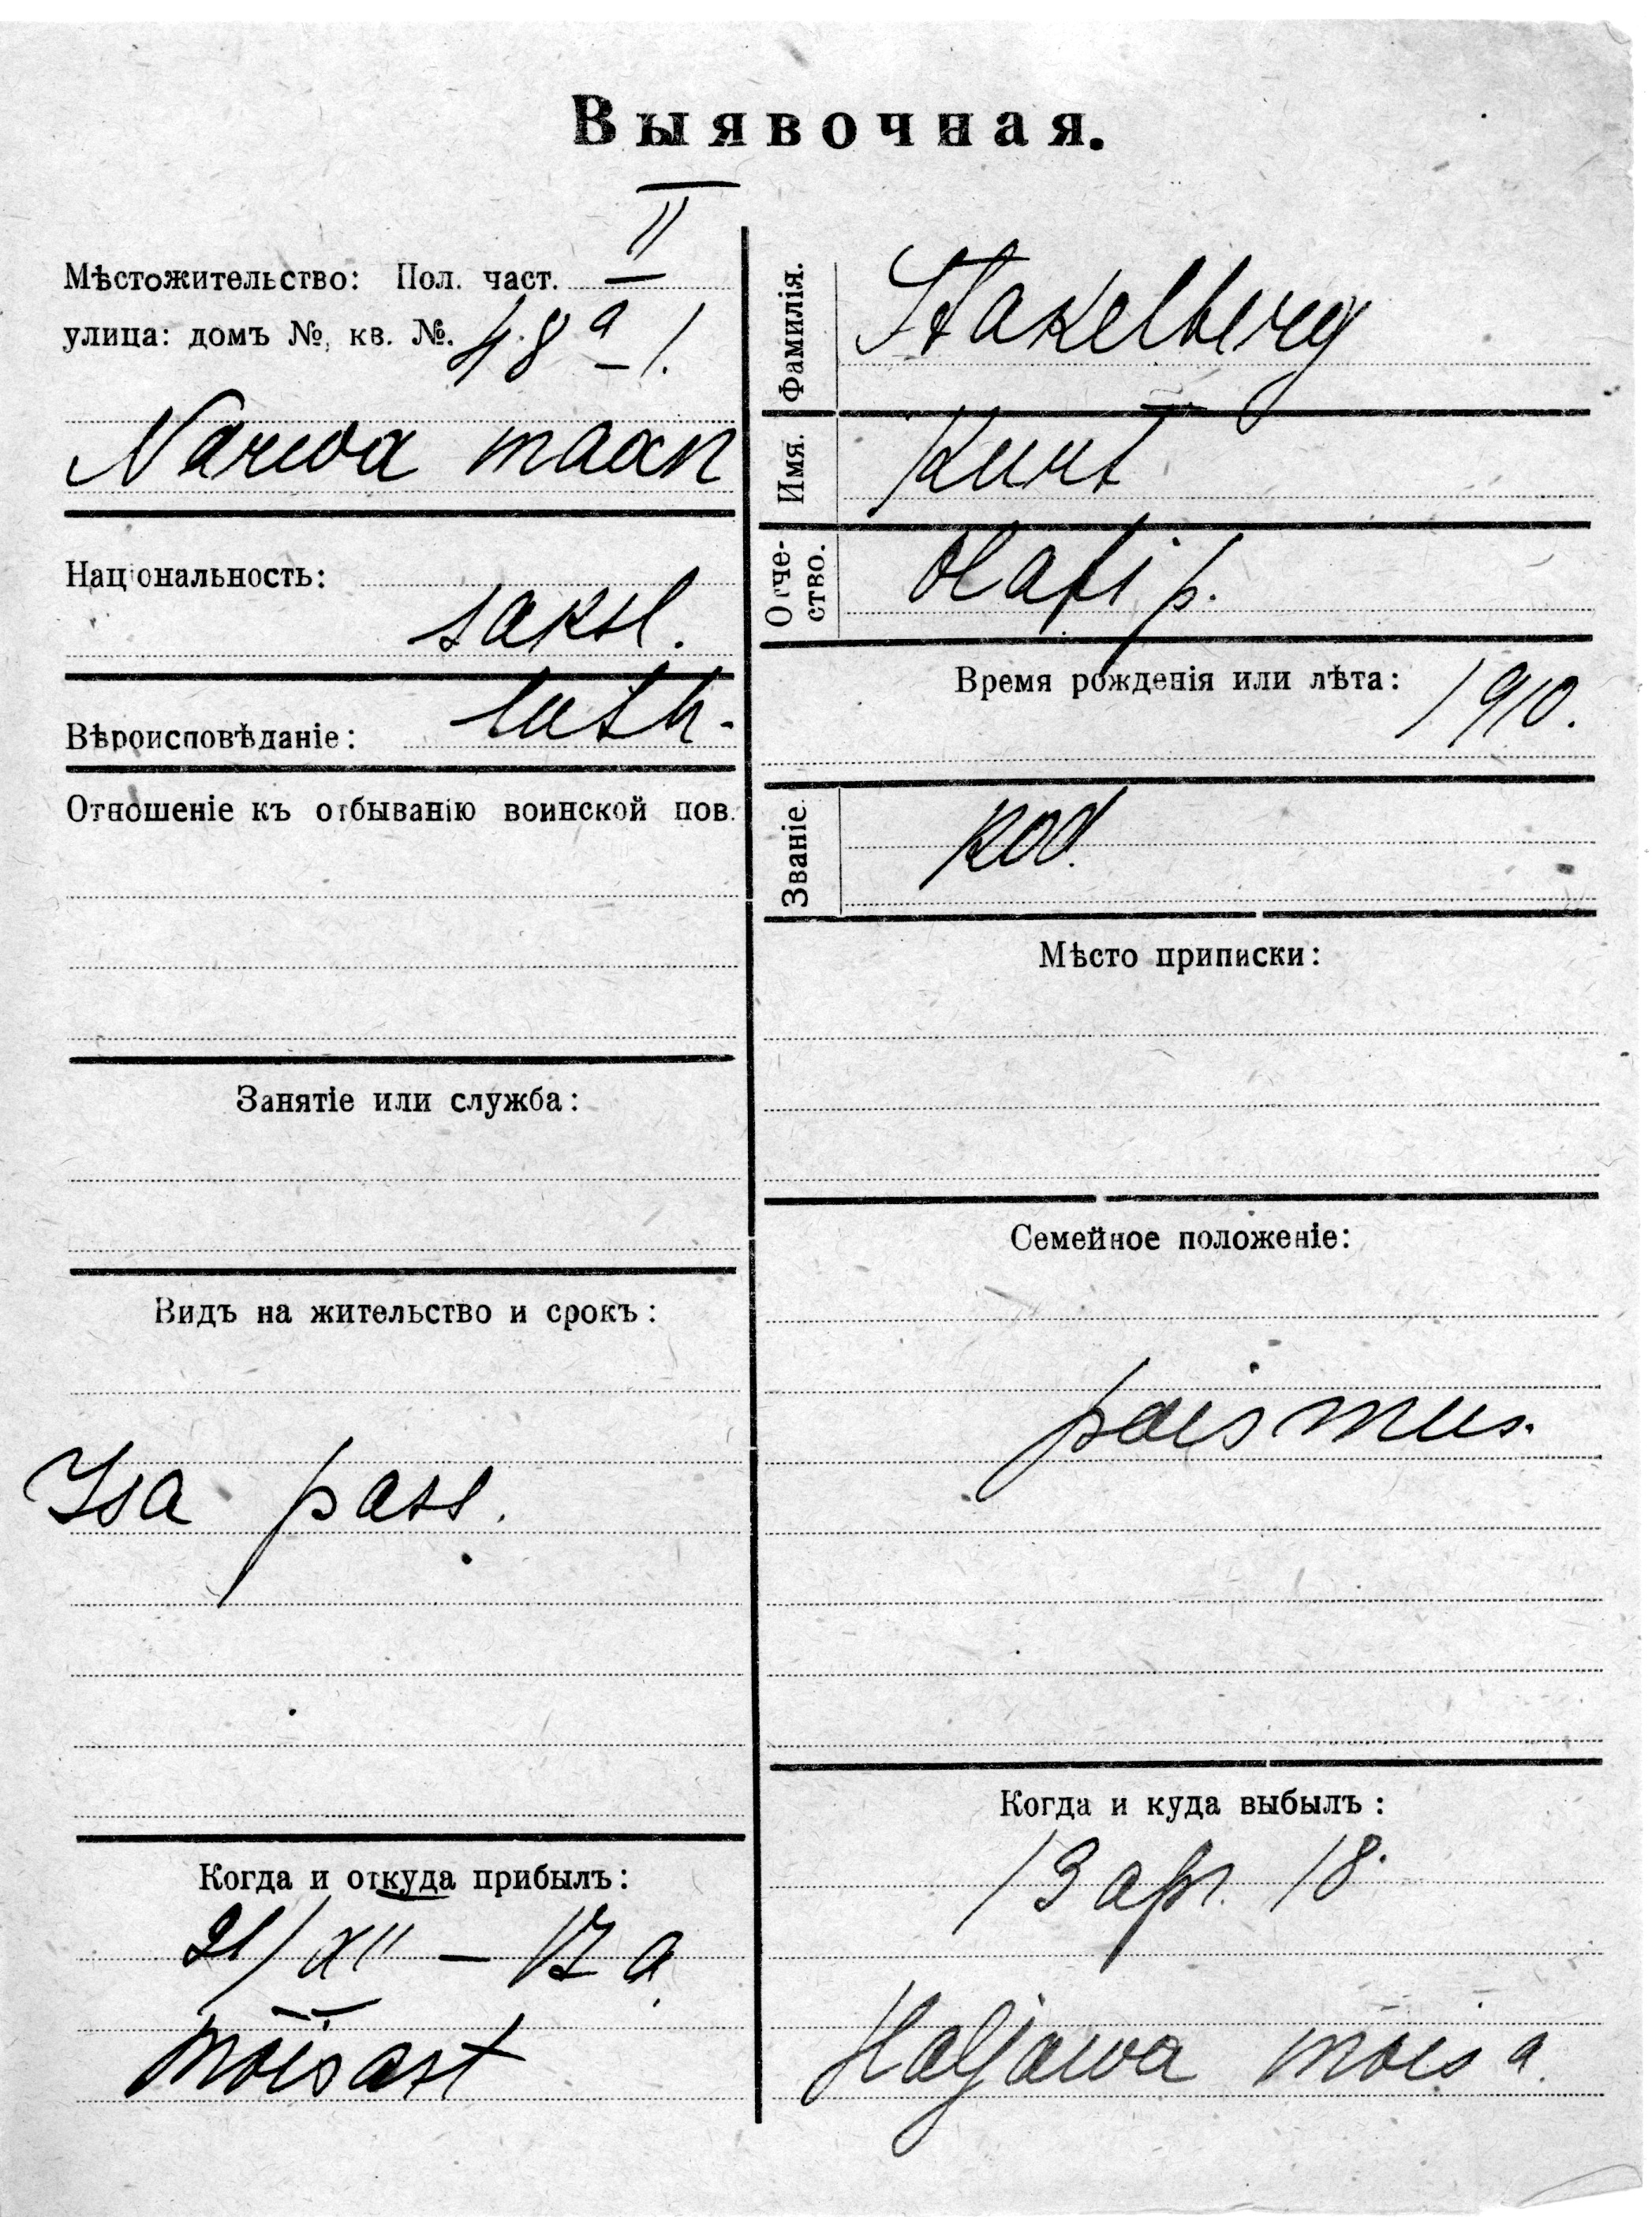 Выявочная.
Мѣстожительство: Пол. част. II
улица: домъ №, кв. №. 48a–1.
Narwa maan
Национальность:
saksl.
Вѣроисповѣданіе: luth.
Отношеніе къ отбыванію воинской пов.
Занятіе или служба:
Видъ на жительство и срокъ:
Isa pass.
Когда и откуда прибылъ:
21/XII – 17 a.
mõisast
Фамилія. Stakelberg
Имя. Kurt
Отче-
ство. Olafi p.
Время рожденія или лѣта: 1910.
Званіе. kod.
Мѣсто приписки:
Семейное положеніе:
poismees.
Когда и куда выбылъ:
13 apr. 18.
Haljawa mõisa.